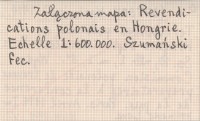 Załączona mapa: Revendi-
cations polonais en Hongrie.
Echelle 1:600.000. Szumański
fec.